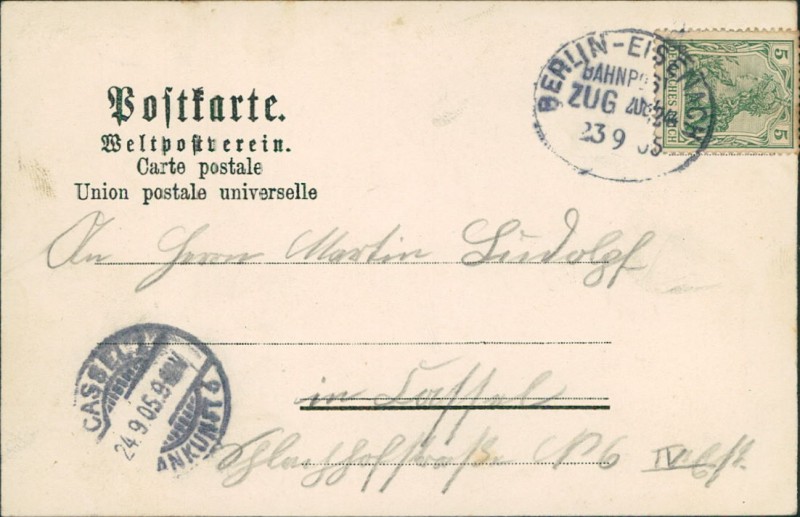 BERLIN-EISENACH
BAHNPOST
ZUG
23 9 05
5
DEUTSCHES REICH
5
Postkarte.
Weltpostverein.
Carte postale
Union postale universelle
An Herrn Martin Ludolph
in Cassel
Schlachthofstraße No 6 IV
CASSEL
24.9.05.9-
ANKUNFT